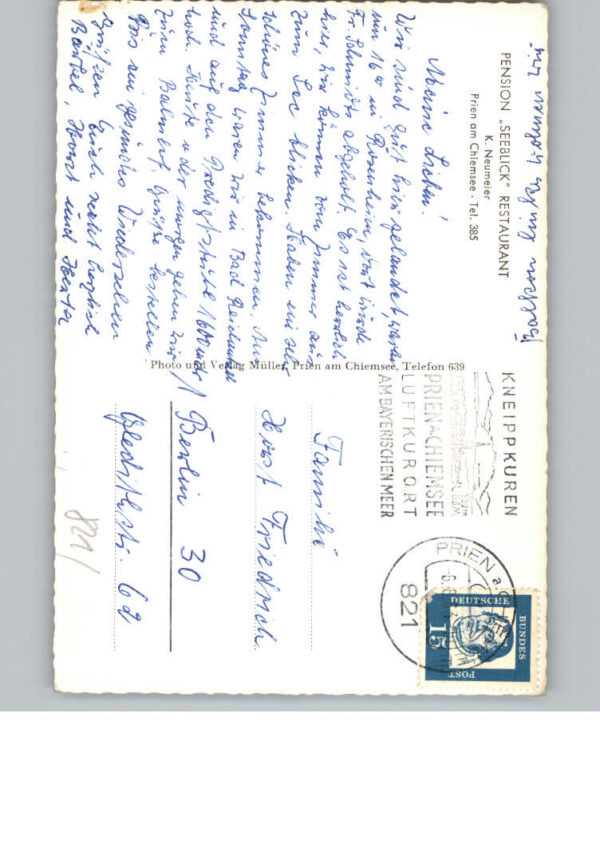 PENSION „SEEBLICK" RESTAURANT
K. Neumeier
Prien am Chiemsee · Tel. 385
Meine Lieben!
Wir sind gut hier gelandet, waren
um 16 in Rosenheim, dort wurde
Fr. Schmidt abgeholt. Es ist herrlich
hier, wir können vom Zimmer aus
zum See blicken. Haben ein sehr
schönes Zimmer bekommen. Am
Sonntag waren wir in Bad Reichenhall
und auf der 1600 mtr
hoch. Heute oder morgen gehen wir
zum Bahnhof, Grüße bestellen.
Bis ein gesundes Wiedersehen
grüßen Euch recht herzlich
Horst und Herta
Photo und Verlag Müller, Prien am Chiemsee, Telefon 639
KNEIPPKUREN
PRIEN a. CHIEMSEE
LUFTKURORT
AM BAYERISCHEN MEER
PRIEN a. CHIEMSEE
821
DEUTSCHE
BUNDES
POST
15
Familie
Horst Friedrich
1 Berlin 30
Gleditschstr. 62
821/